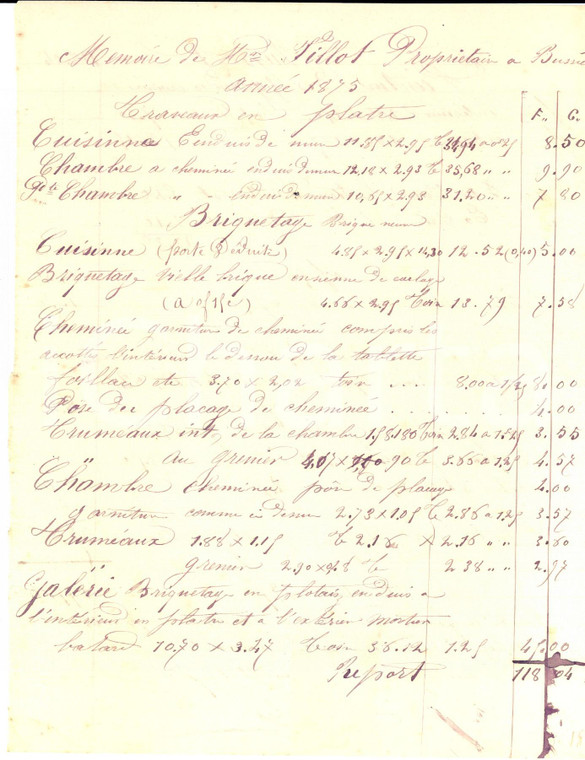 Memoire de Mr Villot Propriétair a
année 1875
Travaux en platre
F. C.
Cuisinne Enduis de mur 11.85 x 2.95 34.94 a 0.25 8.50
Chambre a cheminé enduis de mur 12.18 x 2.93 35,68 " " 9.90
Chambre " " enduis de mur 10,65 x 2.93 31.20 " " 7 80
Briquetage Brique neuve
Cuisinne (porte Déduite) 4.85 x 2.95 14,30 12.52 (0,40) 5.00
Briquetage Vielle brique ancienne de carlage
4.66 x 2.95 Toise 13.79 7.58
Cheminée garniture de cheminée compris les
accotté l'intérieur le dessou de la tablette
3.70 x 2,02 8.00
Pose du placage de cheminée 4.00
Truméaux int. de la chambre 2.84 a 1.25 3.55
" au grenier 3.66 a 1.25 4.57
Chambre cheminée pose de placage 4.00
garniture comme ci dessus 2.73 x 1.05 2.86 a 1.25 3.57
Truméaux 1.88 x 1.15 2.16 x 2.16 " " 3.60
" grenier 2.38 " " 2.97
Galérié Briquetage en plotais, enduis a
l'intérieur en platre et a l'extérier mortier
batard 10.70 x 3.47 Toise 36.12 1.25 45.00
Report 118 04